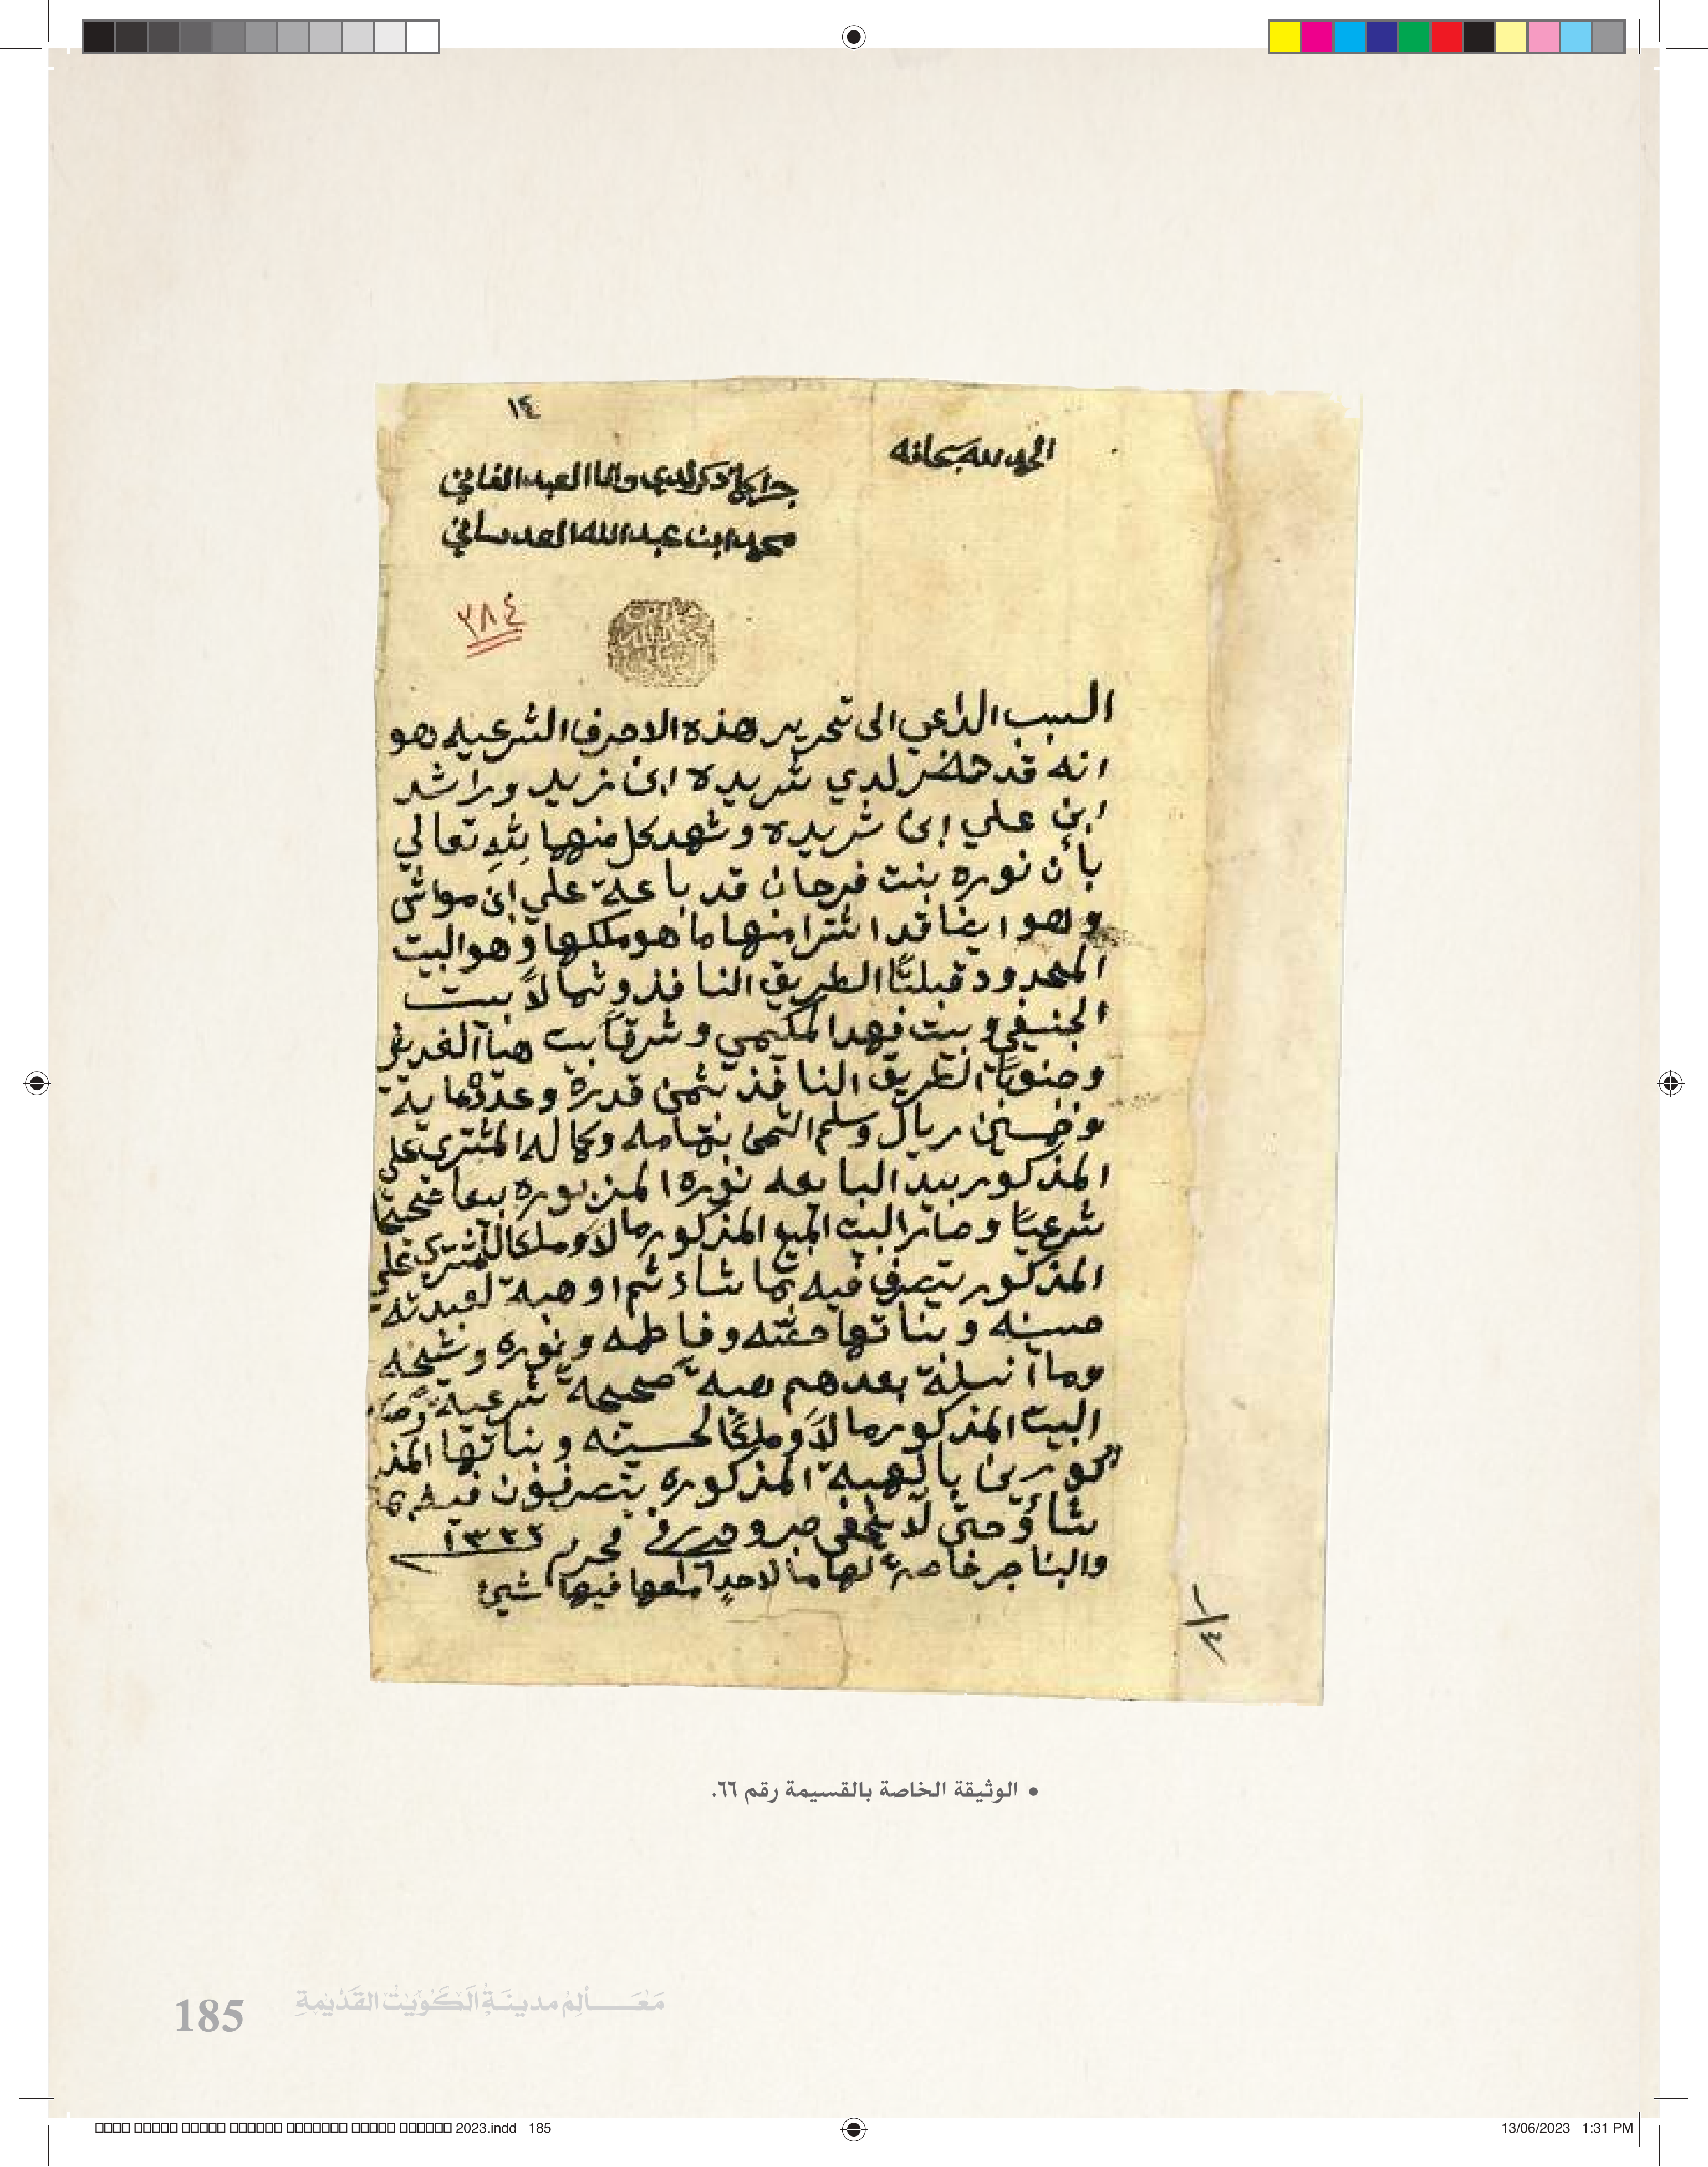 ١٤
الحمد لله سبحانه
جرا ما ذكر لدي وانا العبد الفاني
محمد ابن عبدالله العدساني
٢٨٤
السبب الداعي الى تحرير هذه الاحرف الشرعيه هو
انه قد حضر لدي شريده ابن زيد وراشد
ابن علي ابن شريده وشهد كل منهما لله تعالى
بأن نوره بنت فرحان قد باعة علي ابن مواش
وهو ايضا قد اشترا منها ما هو ملكها وهو البيت
المحدود قبلتًا الطريق النافذ وشمالاً بيت
الجنيفي وبيت فهد المكيمي وشرقاً بيت هيا
وجنوباً الطريق النافذ بثمن قدره وعدده ماية
وخمسين ريال وسلم الثمن بتمامه وكماله المشتري علي
المذكور بيد البايعه نوره المزبوره بيعا صحيحا
شرعيًا وصار البيت المبيع المذكور مالاً وملكا للمشتري علي
المذكور يتصرف فيه بما شاء ثم اوهبه لعبدته
حسينه وبناتها وفاطمه ونوره وشيخه
وما انسلة بعدهم هبة صحيحة شرعية وصار
البيت المذكور مالاً وملكًا لحسينه وبناتها المذ
كورين بالهبه المذكوره يتصرفون فيه بما
شاؤ حتى لا يخفى جرو حرر في محرم ١٣٢٢
والبنا خاصة لها ما لاحدٍ معها فيها شيئ
١/٤
• الوثيقة الخاصة بالقسيمة رقم ٦٦.
185 مَعَـالِمُ مدينَةِ الكُوَيْت القَدْيمةِ
2023.indd 185
13/06/2023 1:31 PM